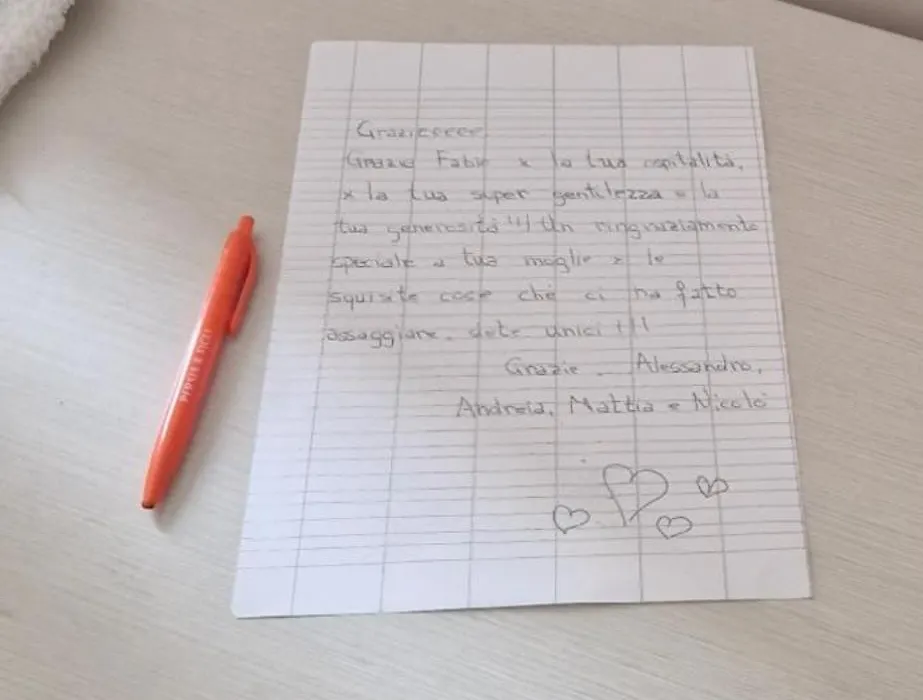 Grazieeeee
Grazie Fabio x la tua ospitalità,
x la tua super gentilezza e la
tua generosità!!! Un ringraziamento
speciale a tua moglie x le
squisite cose che ci ha fatto
assaggiare. siete unici!!!
Grazie. Alessandro,
Andreia, Mattia e Nicolò